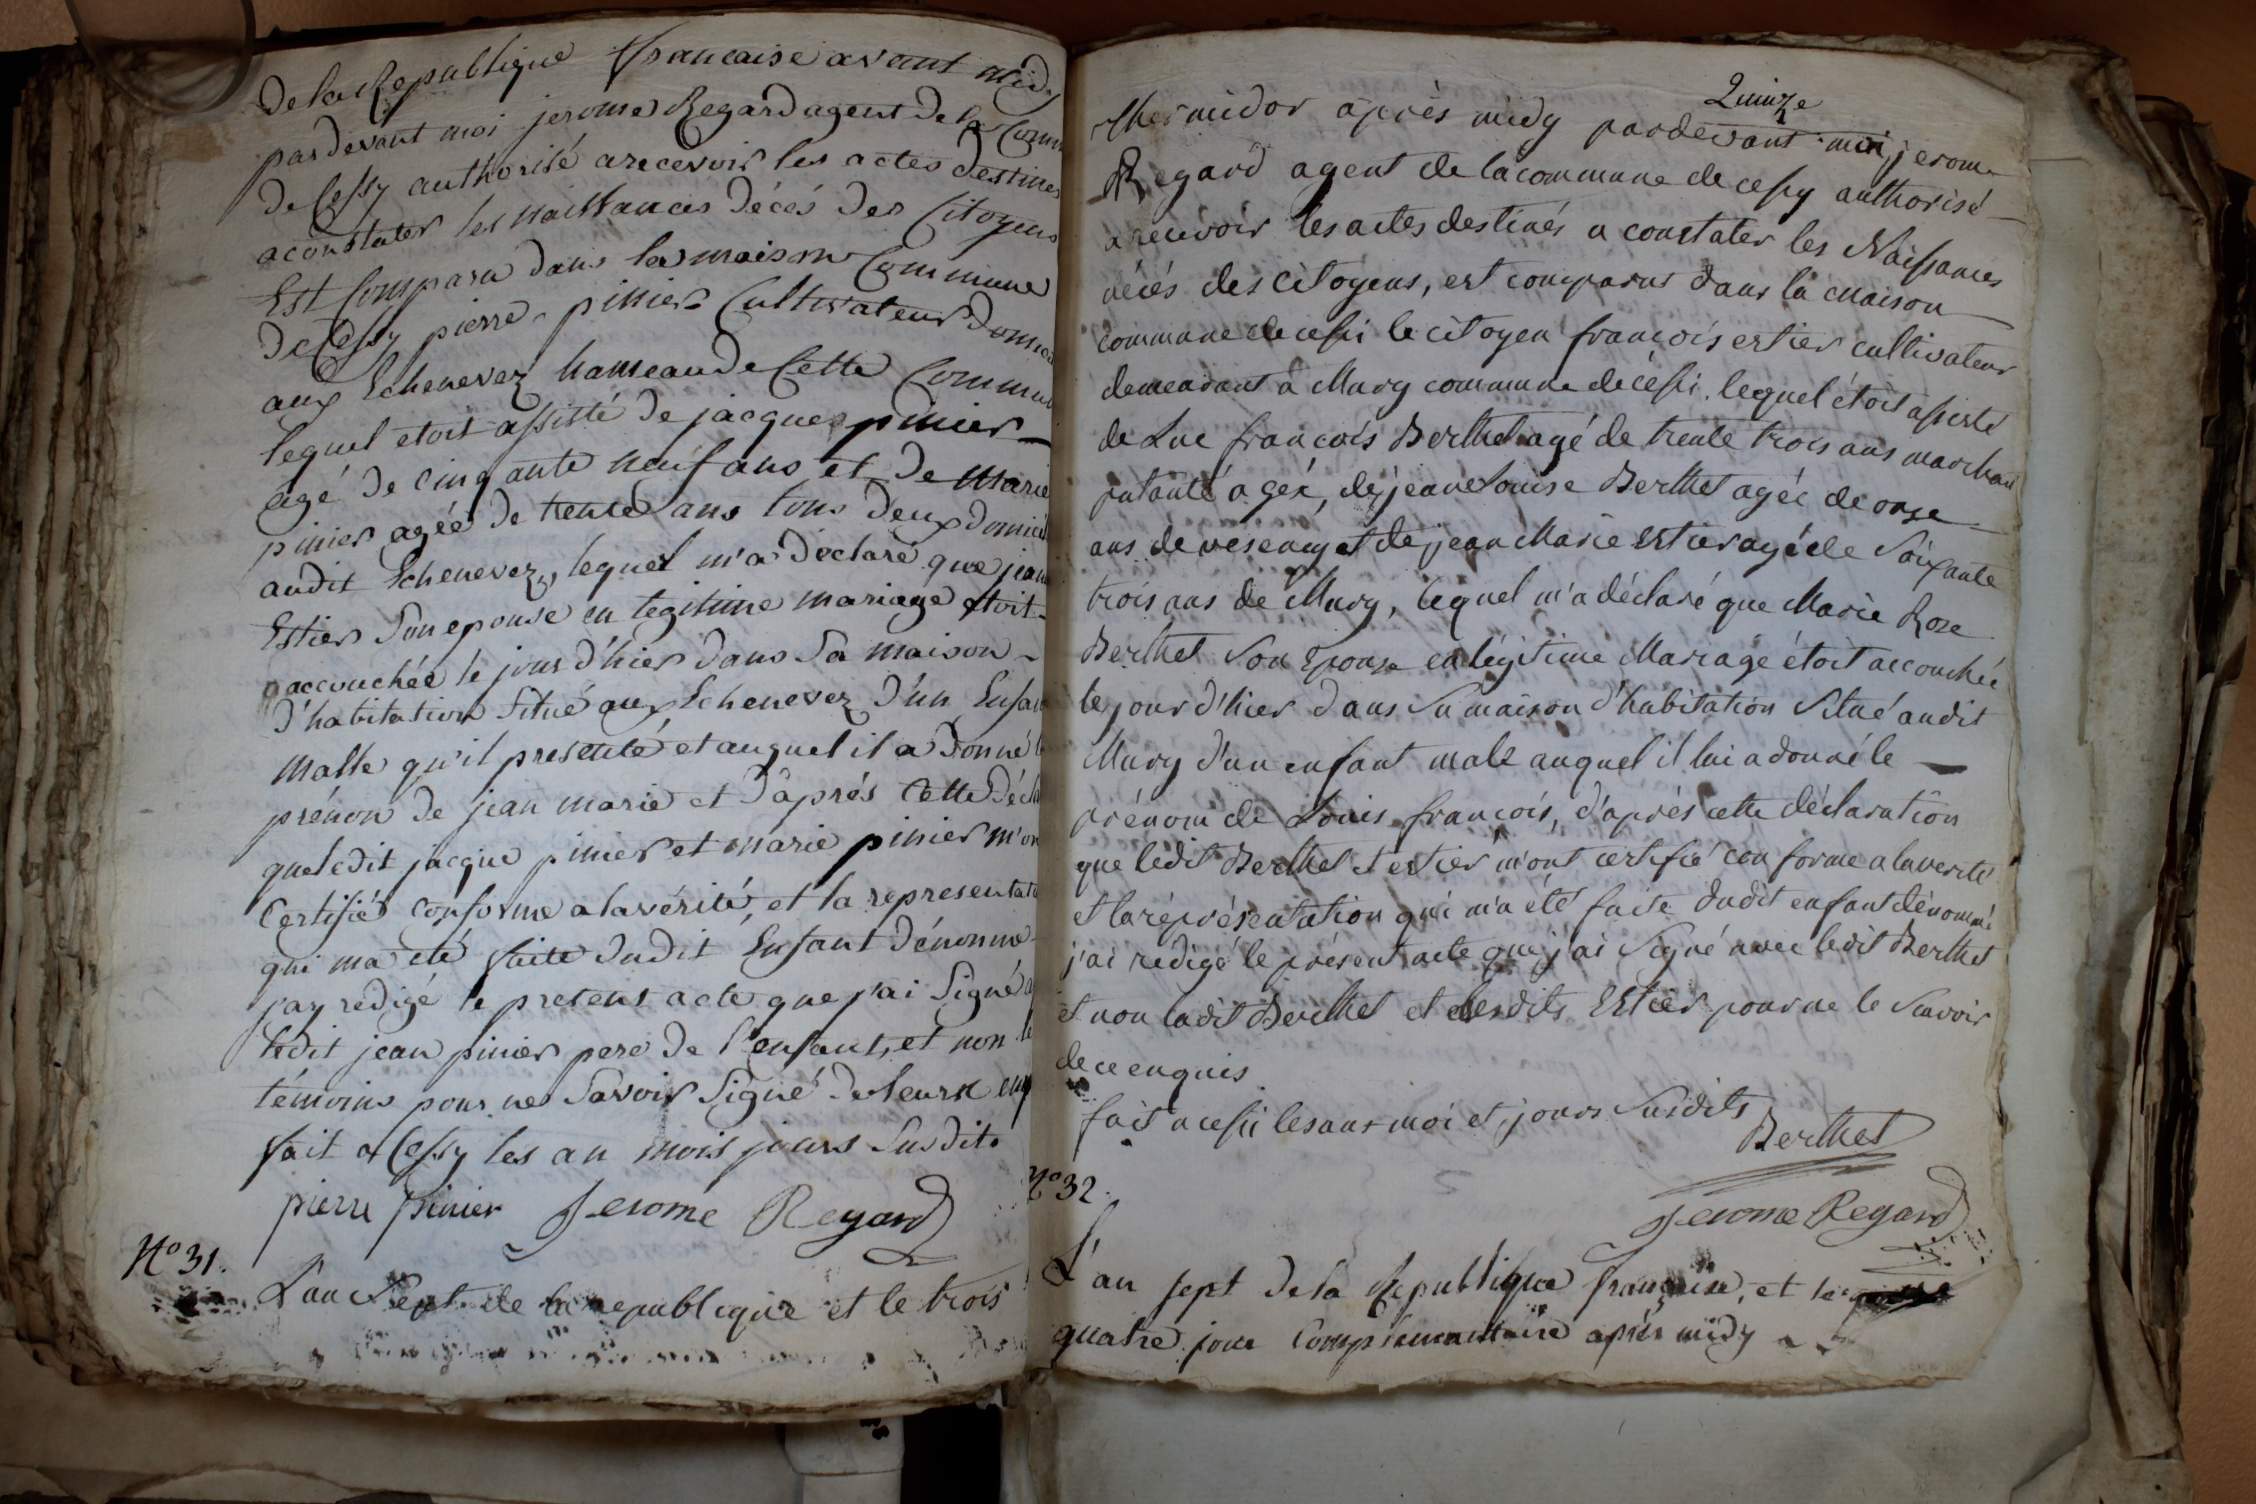 De la Republique francaise avant midy
pardevant moi jerome Regard agent de la Comm
De Cessy authorisé a recevoir les actes destines
a constater les naissances décés des Citoyens
Est Comparu dans la maison Commune
De Cessy pierre pinier Cultivateur
aux Echenevez hameau de Cette Commun
lequel etoit assisté de jacques pinier
agé de cinquante neuf ans et de marie
pinier agée de trente ans tous deux domicil
audit Echenevez, lequel m'a déclaré que jean
Estier son epouse en legitime mariage etoit
accouchée le jour d'hier dans sa maison
d'habitation situé aux Echenevez d'un Enfan
malle qu'il presenté et auquel il a donné l
prénon de jean marie et d'aprés Cette décla
que ledit jacque pinier et marie pinier m'on
Certifiés conforme a la vérité, et la representati
qui ma eté faite dudit Enfant dénommé
j'ay rédigé le present acte que j'ai signé a
ledit jean pinier pere de l'enfant, et non le
témoins pour ne savoir signé de leurx enq
fait a Cessy les an mois jours susdits
pierre pinier Jerome Regard
N° 31.
L'an sept de la republique et le trois
Quinze
thermidor après midy pardevant moi jerome
Regard agent de la commune de cessy authorisé
a recevoir les actes destinés a constater les Naissances
décés des citoyens, est comparus dans la maison
commune de cessi le citoyen françois estier cultivateur
demeurant a Mury commune de cessi. lequel étoit assisté
de Luc françois Berthet agé de trente trois ans marchan
patanté a gex, de jeane Louise Berthet agée de onze
ans de vesency et de jean Marie Estier agé de soixante
trois ans de Mury, lequel m'a déclaré que Marie Roze
Berthet son Epouse en légitime Mariage étoit accouchée
le jour d'hier dans sa maison d'habitation situé audit
Mury d'un enfant male auquel il lui a donné le
prénom de Louis françois, d'après cette déclaration
que ledit Berthet et estier m'ont certifié conforme a la verité
et la réprésentation qui m'a été faite dudit enfant dénommé
j'ai rédigé le présent acte que j'ai signé avec ledit Berthet
et non ladit Berthet et lesdits Estier pour ne le savoir
de ce enquis
fait a cessi les ans moi et jours susdits
Berthet
Jerome Regard
N° 32.
L'an sept de la Republique française, et le
quatre jour Complementaire aprés midy